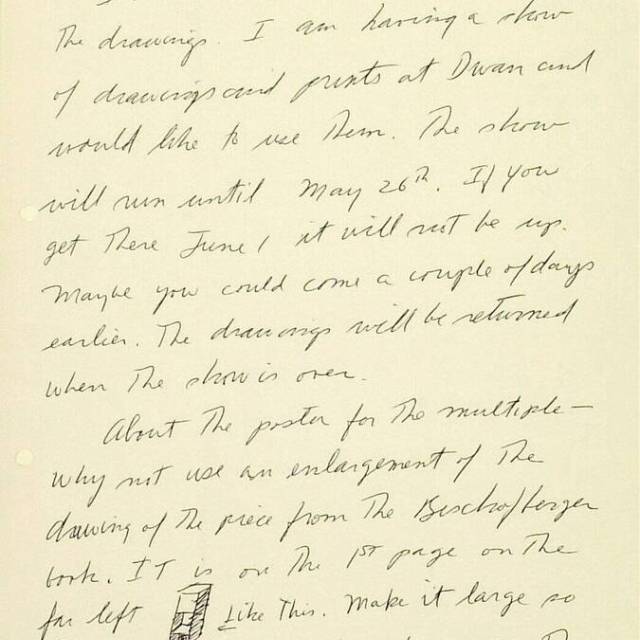 The drawings. I am having a show
of drawings and prints at Dwan and
would like to use them. The show
will run until May 26th. If you
get there June 1 it will not be up.
Maybe you could come a couple of days
earlier. The drawings will be returned
when the show is over.
About the poster for the multiple—
why not use an enlargement of the
drawing of the piece from the Bischofberger
book. IT is on the 1st page on the
far left Like This. Make it large so